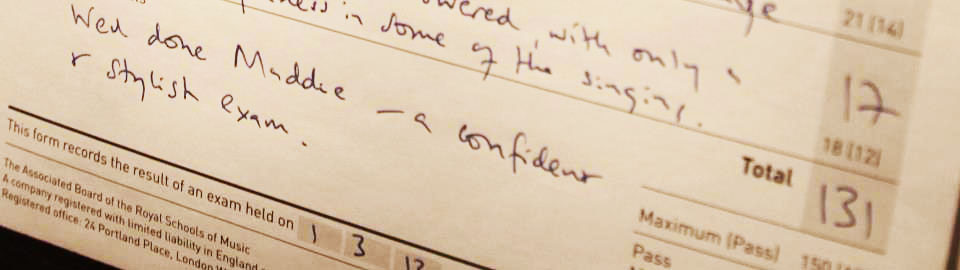 21 (14)
with only a
in some of the singing.
17
18 (12)
Well done Maddie – a confident
& stylish exam.
Total 131
Maximum (Pass) 150
Pass
This form records the result of an exam held on 1 3 12
The Associated Board of the Royal Schools of Music
A company registered with limited liability in England
Registered office: 24 Portland Place, London